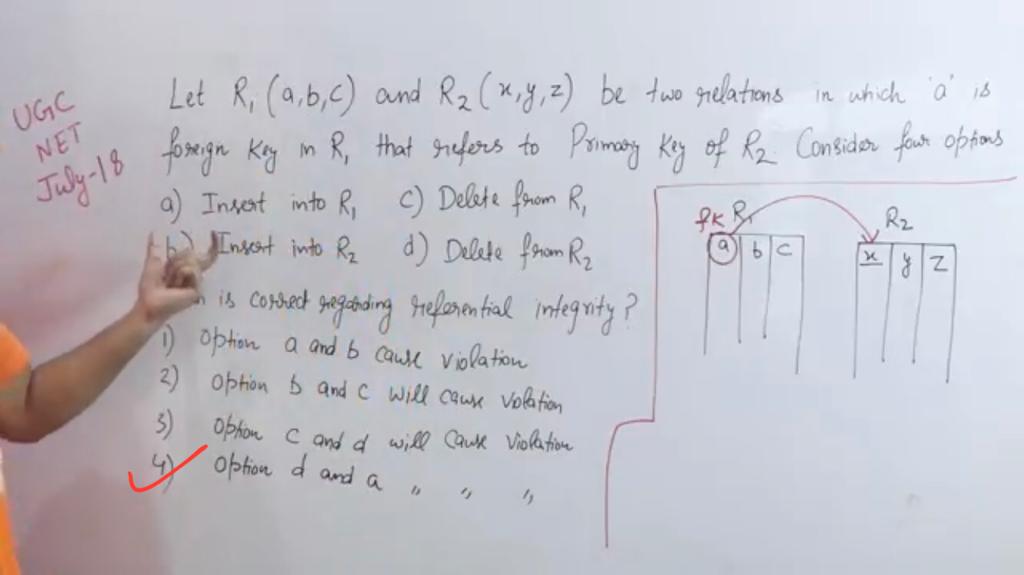 UGC
NET
July-18
Let R₁ (a,b,c) and R₂ (x,y,z) be two relations in which 'a' is
foreign key in R₁ that refers to Primary key of R₂. Consider four options
a) Insert into R₁ c) Delete from R₁
b) Insert into R₂ d) Delete from R₂
is correct regarding referential integrity?
1) Option a and b cause violation
2) Option b and c will cause violation
3) Option c and d will cause violation
4) Option d and a " " "
fk R₁ R₂
a b c x y z